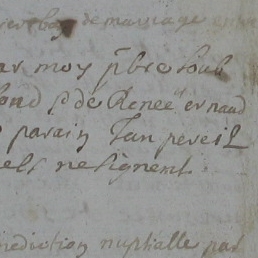 de mariage entre
par moy pbre soub
fond p de Renee ernaud
parain Jan pereil
els ne signent
nediction nuptialle par